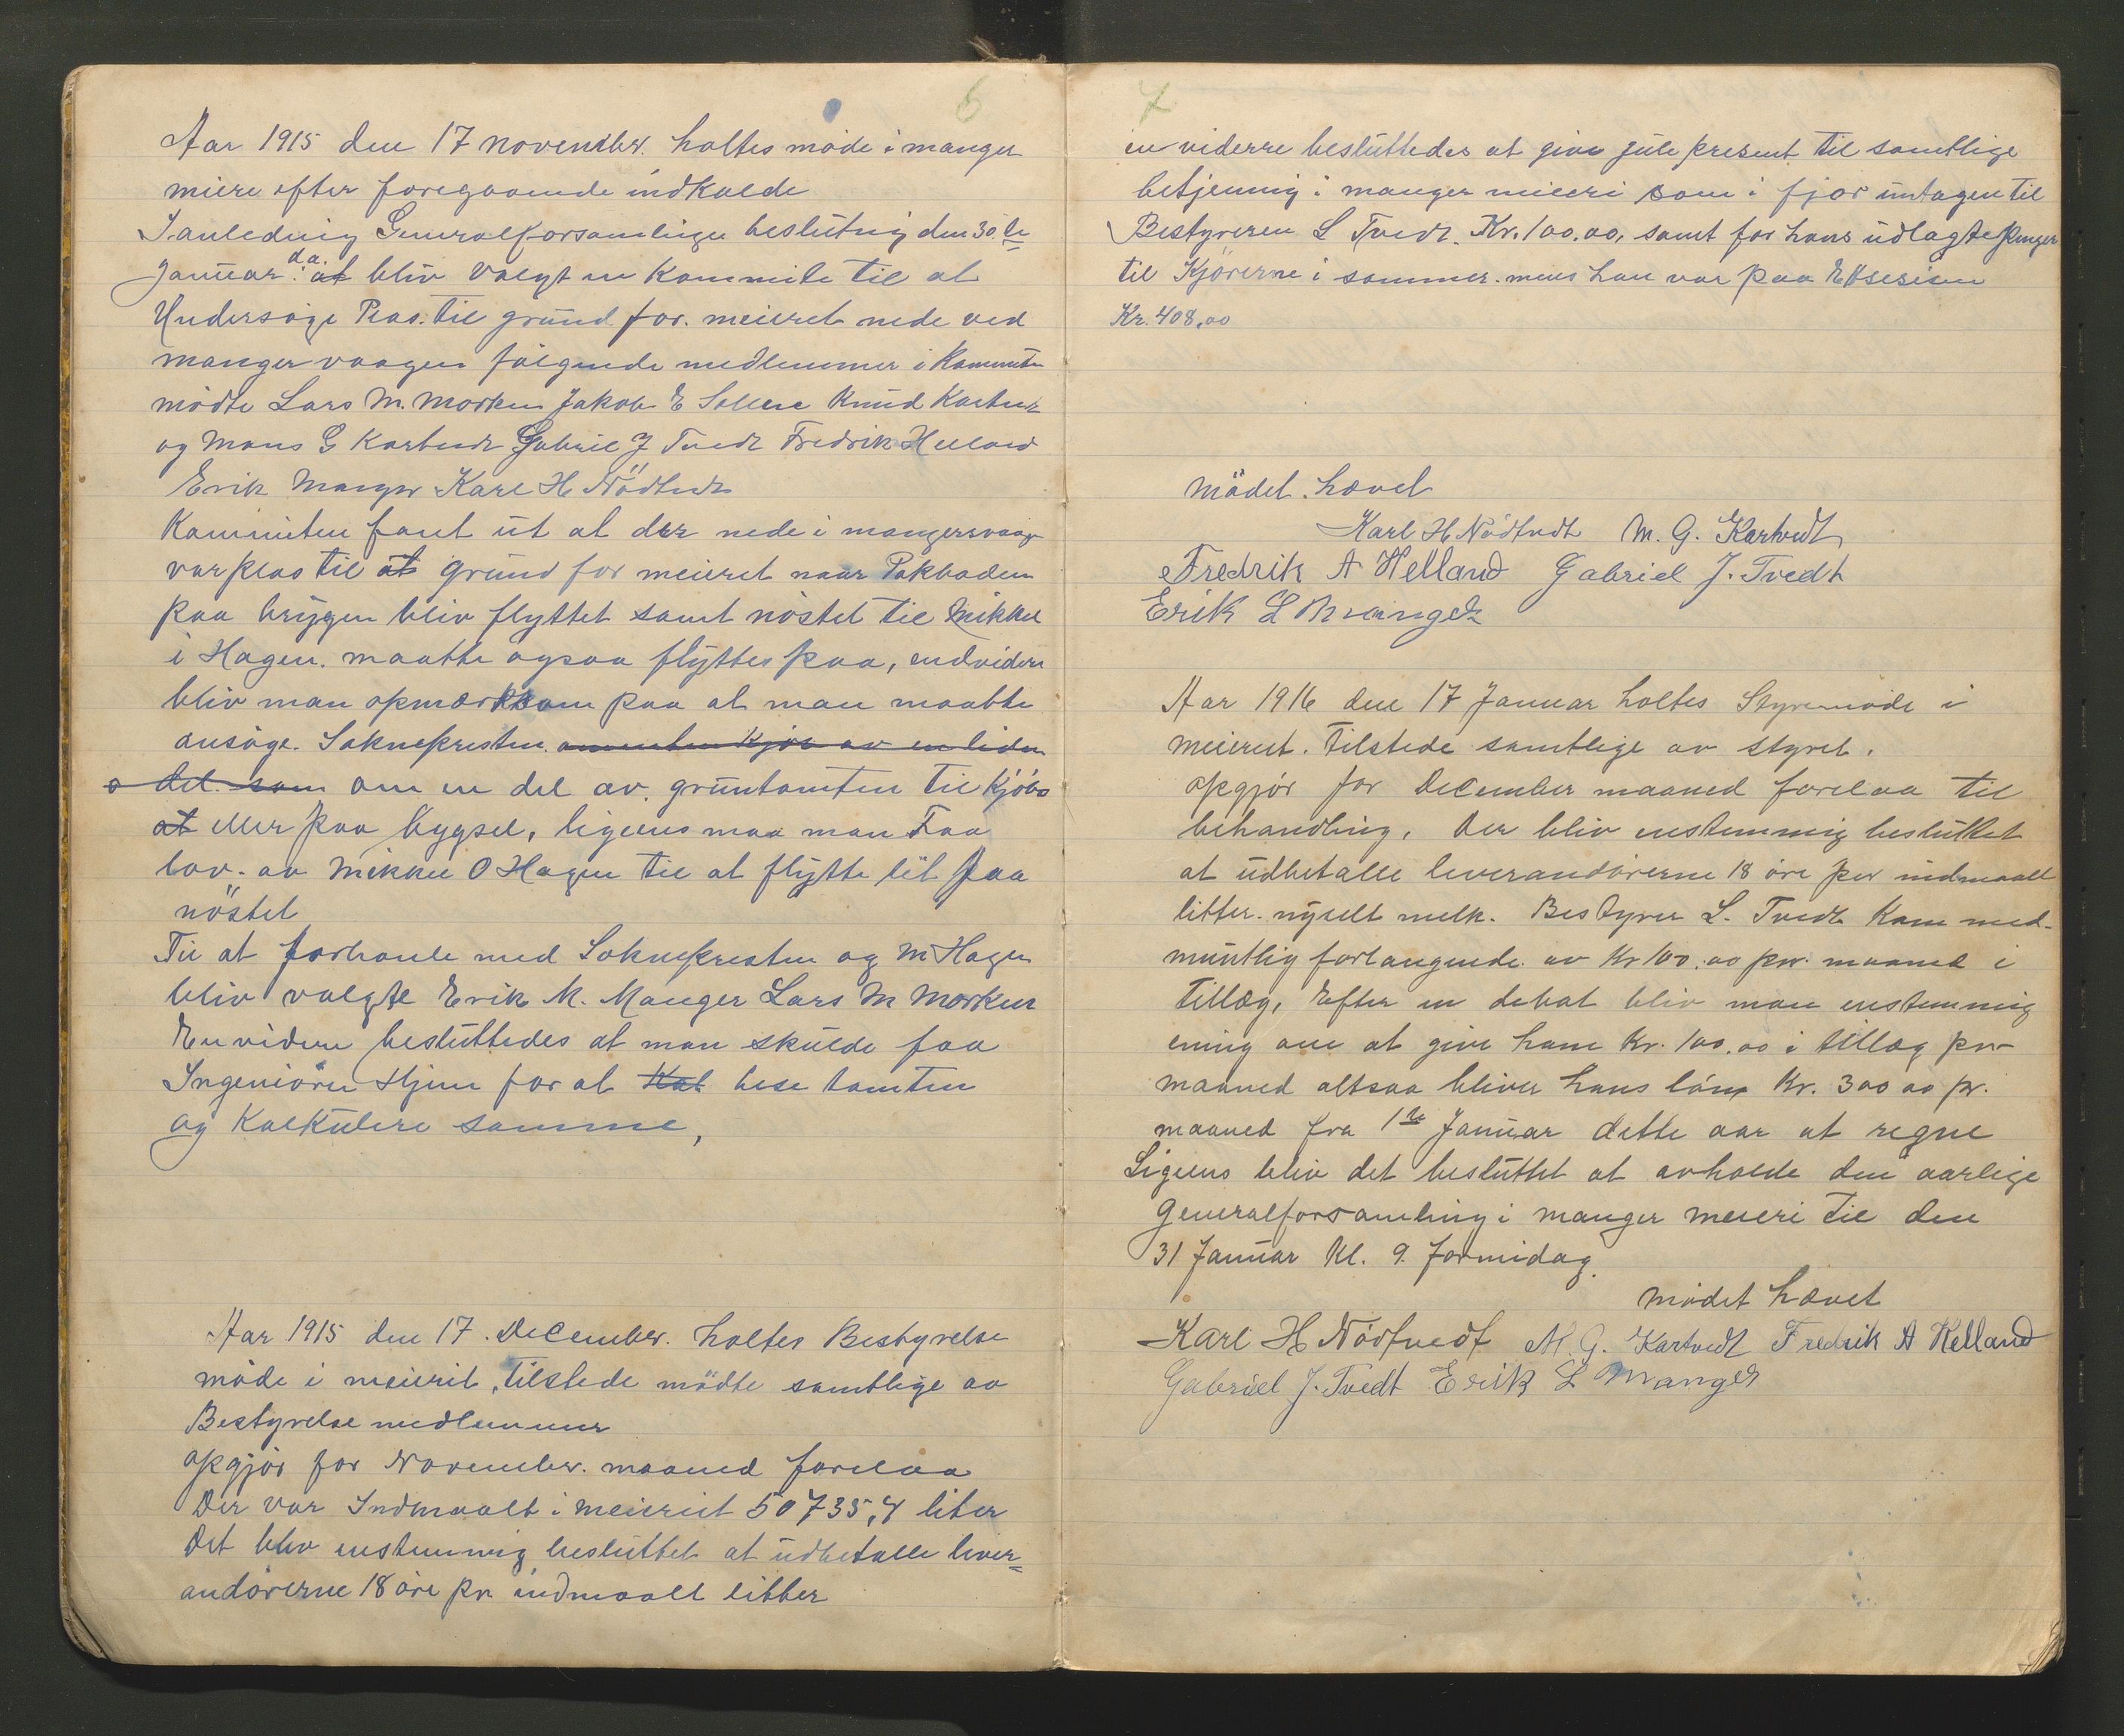 6
Aar 1915 den 17 november. holtes møde i manger
miere efter foregaaende indkalde
I anledning Generalforsamlingen beslutnig den 30 te
Januar. da. at bliv valgt en Kommite til at
Undersøge Plas. til grund for. meieret nede ved
manger vaagen følgende medlemmer i Kommiten
mødte Lars M. Morken Jakob E Sollere Knud Kartvedt
og Mons G Kartvedt Gabriel J Tvedt Fredrik Helland
Erik Manger Karl H Nödtvedt
Kommiten fant ut at der nede i mangersvaag
var plas til at grund for meieret naar Pakboden
paa brygen bliv flyttet samt nöstet til Mikkel
i Hagen. maatte ogsaa flyttes paa, endvidere
bliv man opmærksom paa at man maatte
ansøge. Soknepristen. kjøs av en liden
del som om en del av. gruntomten til Kjöbs
at eller paa bygsel, ligeens maa man Faa
lov. av Mikkel O Hagen til at flytte lit paa
nöstet
Til at forhanle med Soknepresten og M Hagen
bliv valgte Erik M. Manger Lars M Morken
En videre besluttedes at man skulde faa
Ingeniøren Hjem for at Kal bese tomten
og Kalkulere samme,
Aar 1915 den 17. December. holtes Bestyrelse
møde i meierit, tilstede mødte samtlige av
Bestyrelse medlemmer
opgjør for November. maaned forelaa
Der var Indmaalt i meieriet 50735,4 liter
Det bliv enstemmig besluttet at udbetalle lever=
andörerne 18 öre pr indmaalt litter
7
en viderre besluttedes at give jule present til samtlige
betjennig i manger mieeri som i fjor untagen til
Bestyreren L Tvedt. Kr. 100.00, samt for hans udlagte penger
til Kjörerne i sommer. mens han var paa
Kr. 408,00
Mödet. hævet
Karl H Nödtvedt M. G. Kartvedt
Fredrik A Helland Gabriel J. Tvedt
Erik L Manger
Aar 1916 den 17 Januar holtes Styremøde i
meieriet. Tilstede samtlige av styret.
opgjör for December maaned forelaa til
behandling. Der bliv enstemmig besluttet
at udbetalle leverandörerne 18 öre per indmaalt
litter. nysilt melk. Bestyrer L. Tvedt Kom med
muntlig forlangende av Kr 100.00 pr. maaned i
Tillæg, Efter en debat bliv man enstemmig
ening om at give ham Kr. 100,00 i tillæg pr
maaned altsaa bliver hans lönn Kr. 300 00 pr.
maaned fra 1ste Januar dette aar at regne
Ligeens bliv det besluttet at avholde den aarlige
generalforsamling i manger meieri til den
31 Januar Kl. 9. formidag.
Mødet hævet
Karl H Nödtvedt M. G. Kartvedt Fredrik A Helland
Gabriel J. Tvedt Erik L Manger